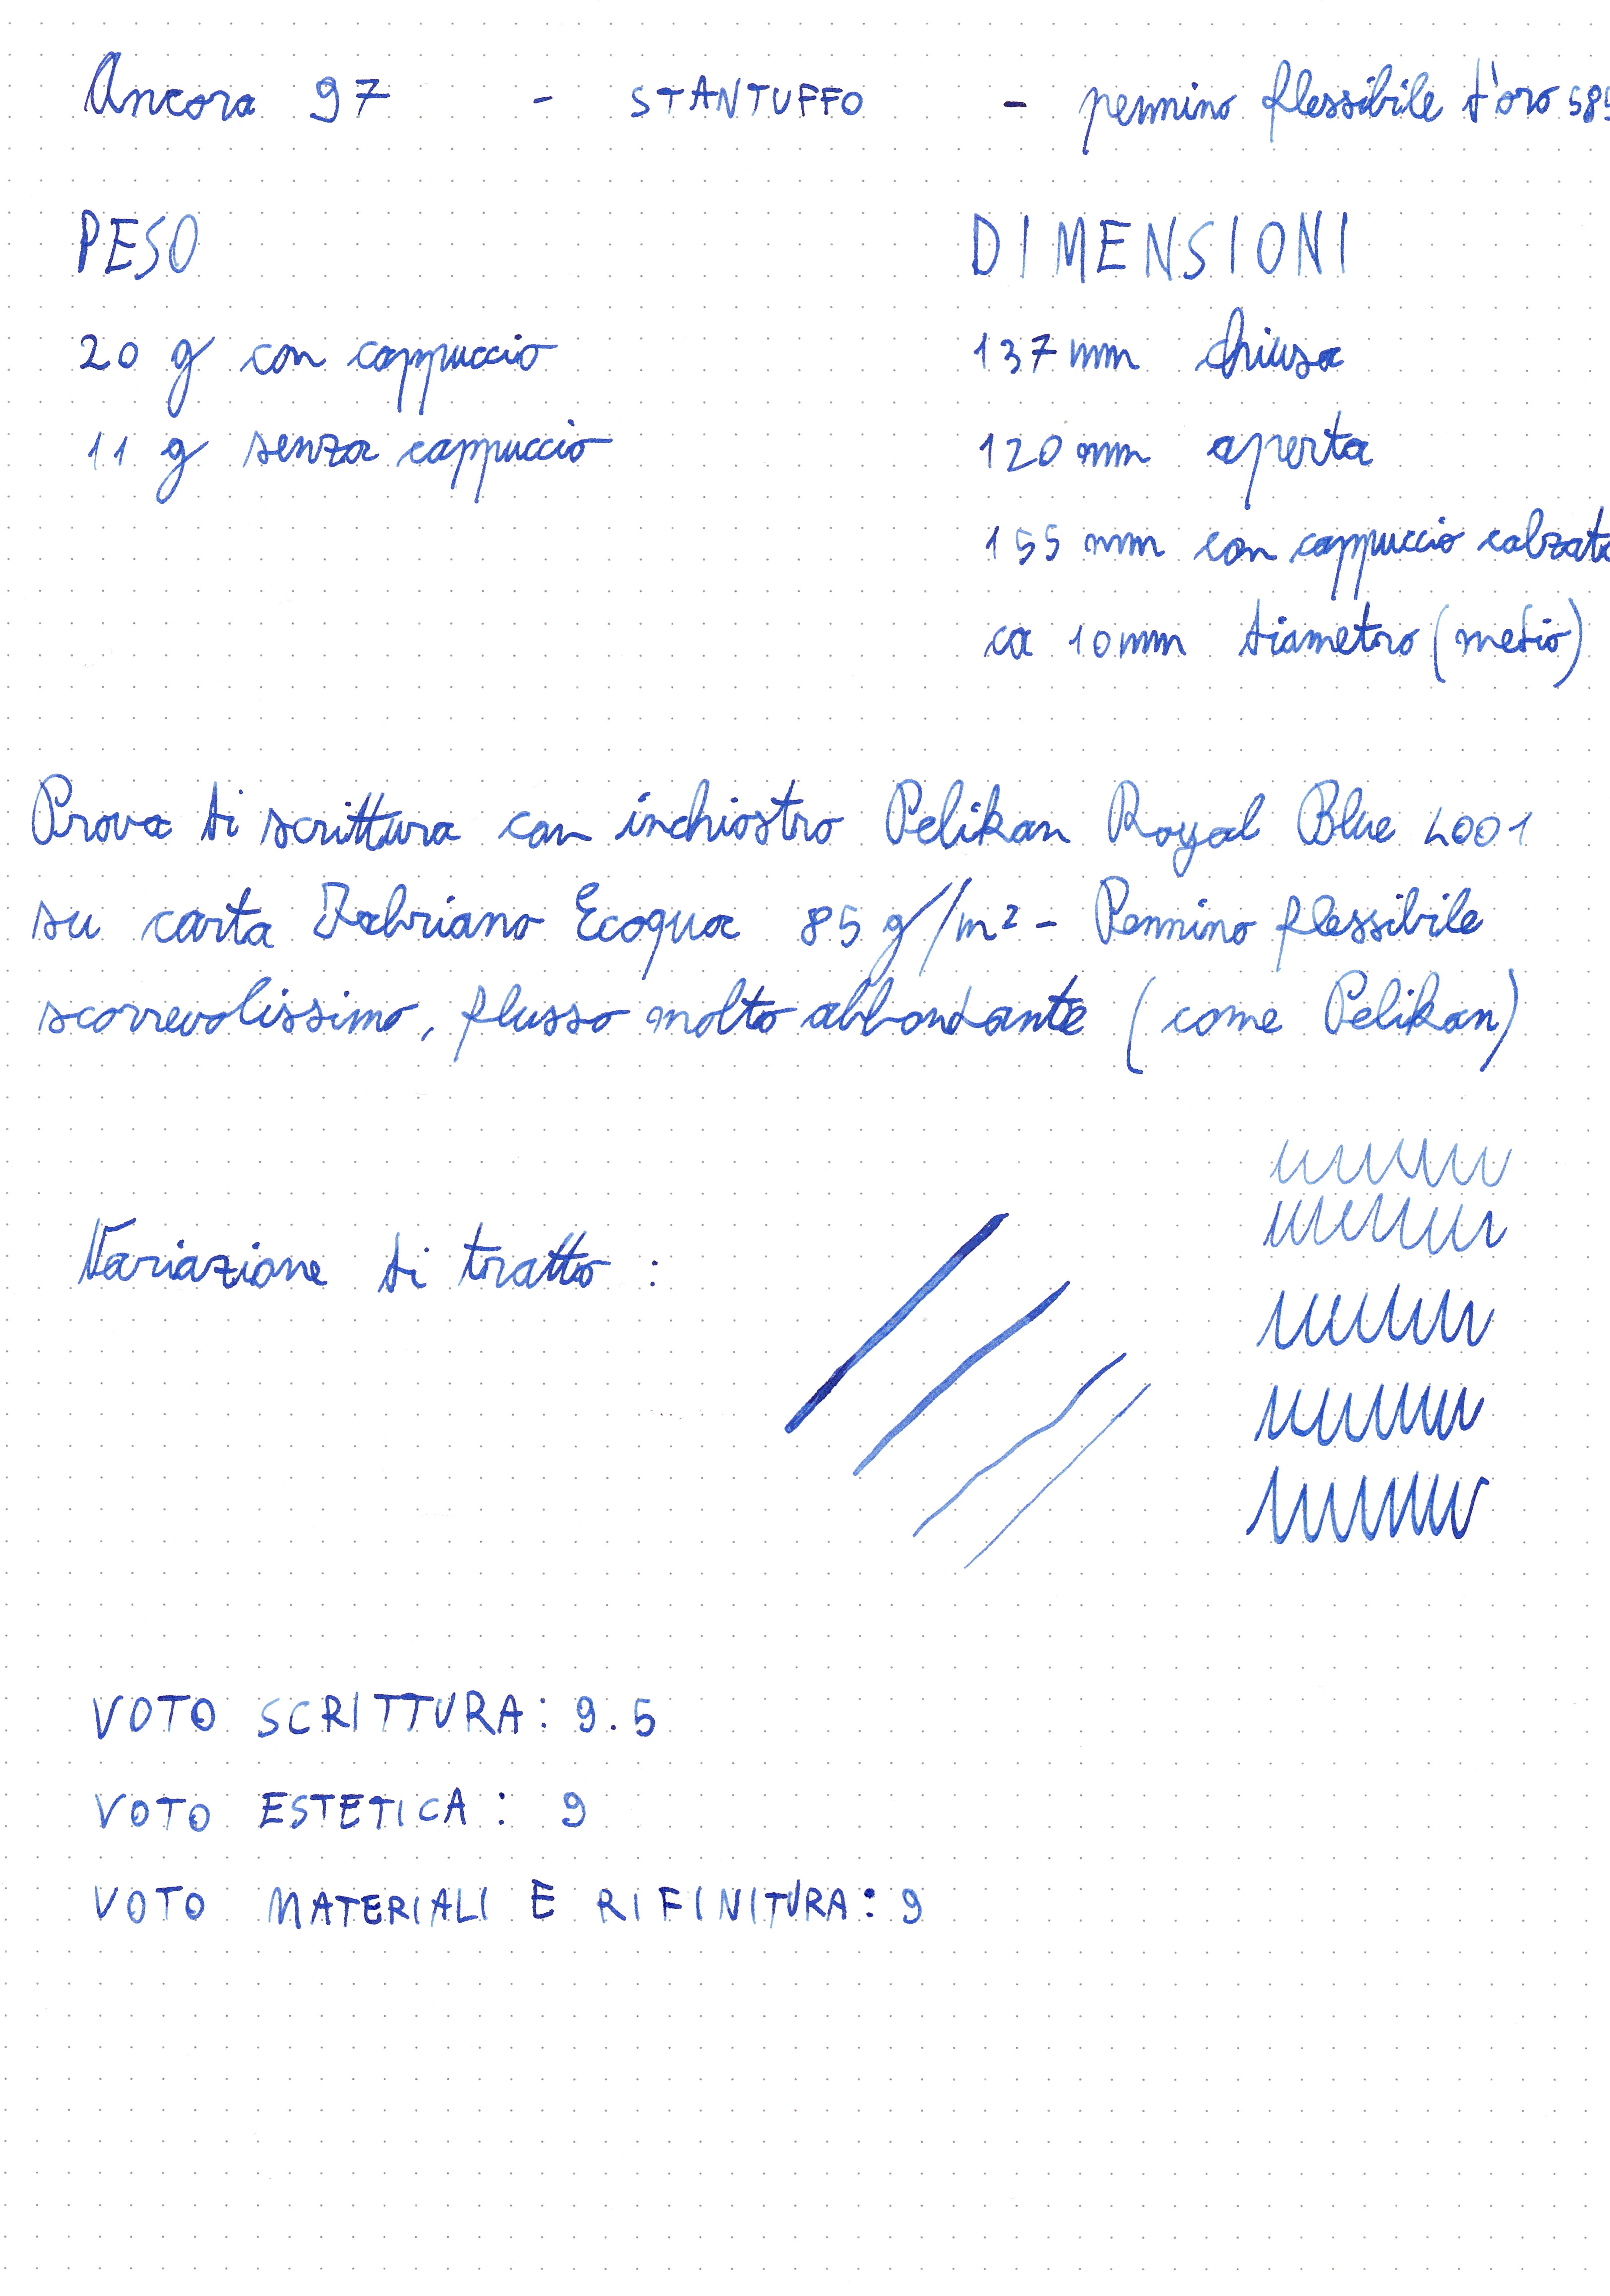 Ancora 97 - STANTUFFO - pennino flessibile d'oro 585
PESO DIMENSIONI
20 g con cappuccio 137 mm chiusa
11 g senza cappuccio 120 mm aperta
155 mm con cappuccio calzato
ca 10 mm diametro (medio)
Prova di scrittura con inchiostro Pelikan Royal Blue 4001
su carta Fabriano Ecoqua 85 g/m² - Pennino flessibile
scorrevolissimo, flusso molto abbondante (come Pelikan)
Variazione di tratto :
VOTO SCRITTURA: 9.5
VOTO ESTETICA: 9
VOTO MATERIALI E RIFINITURA: 9